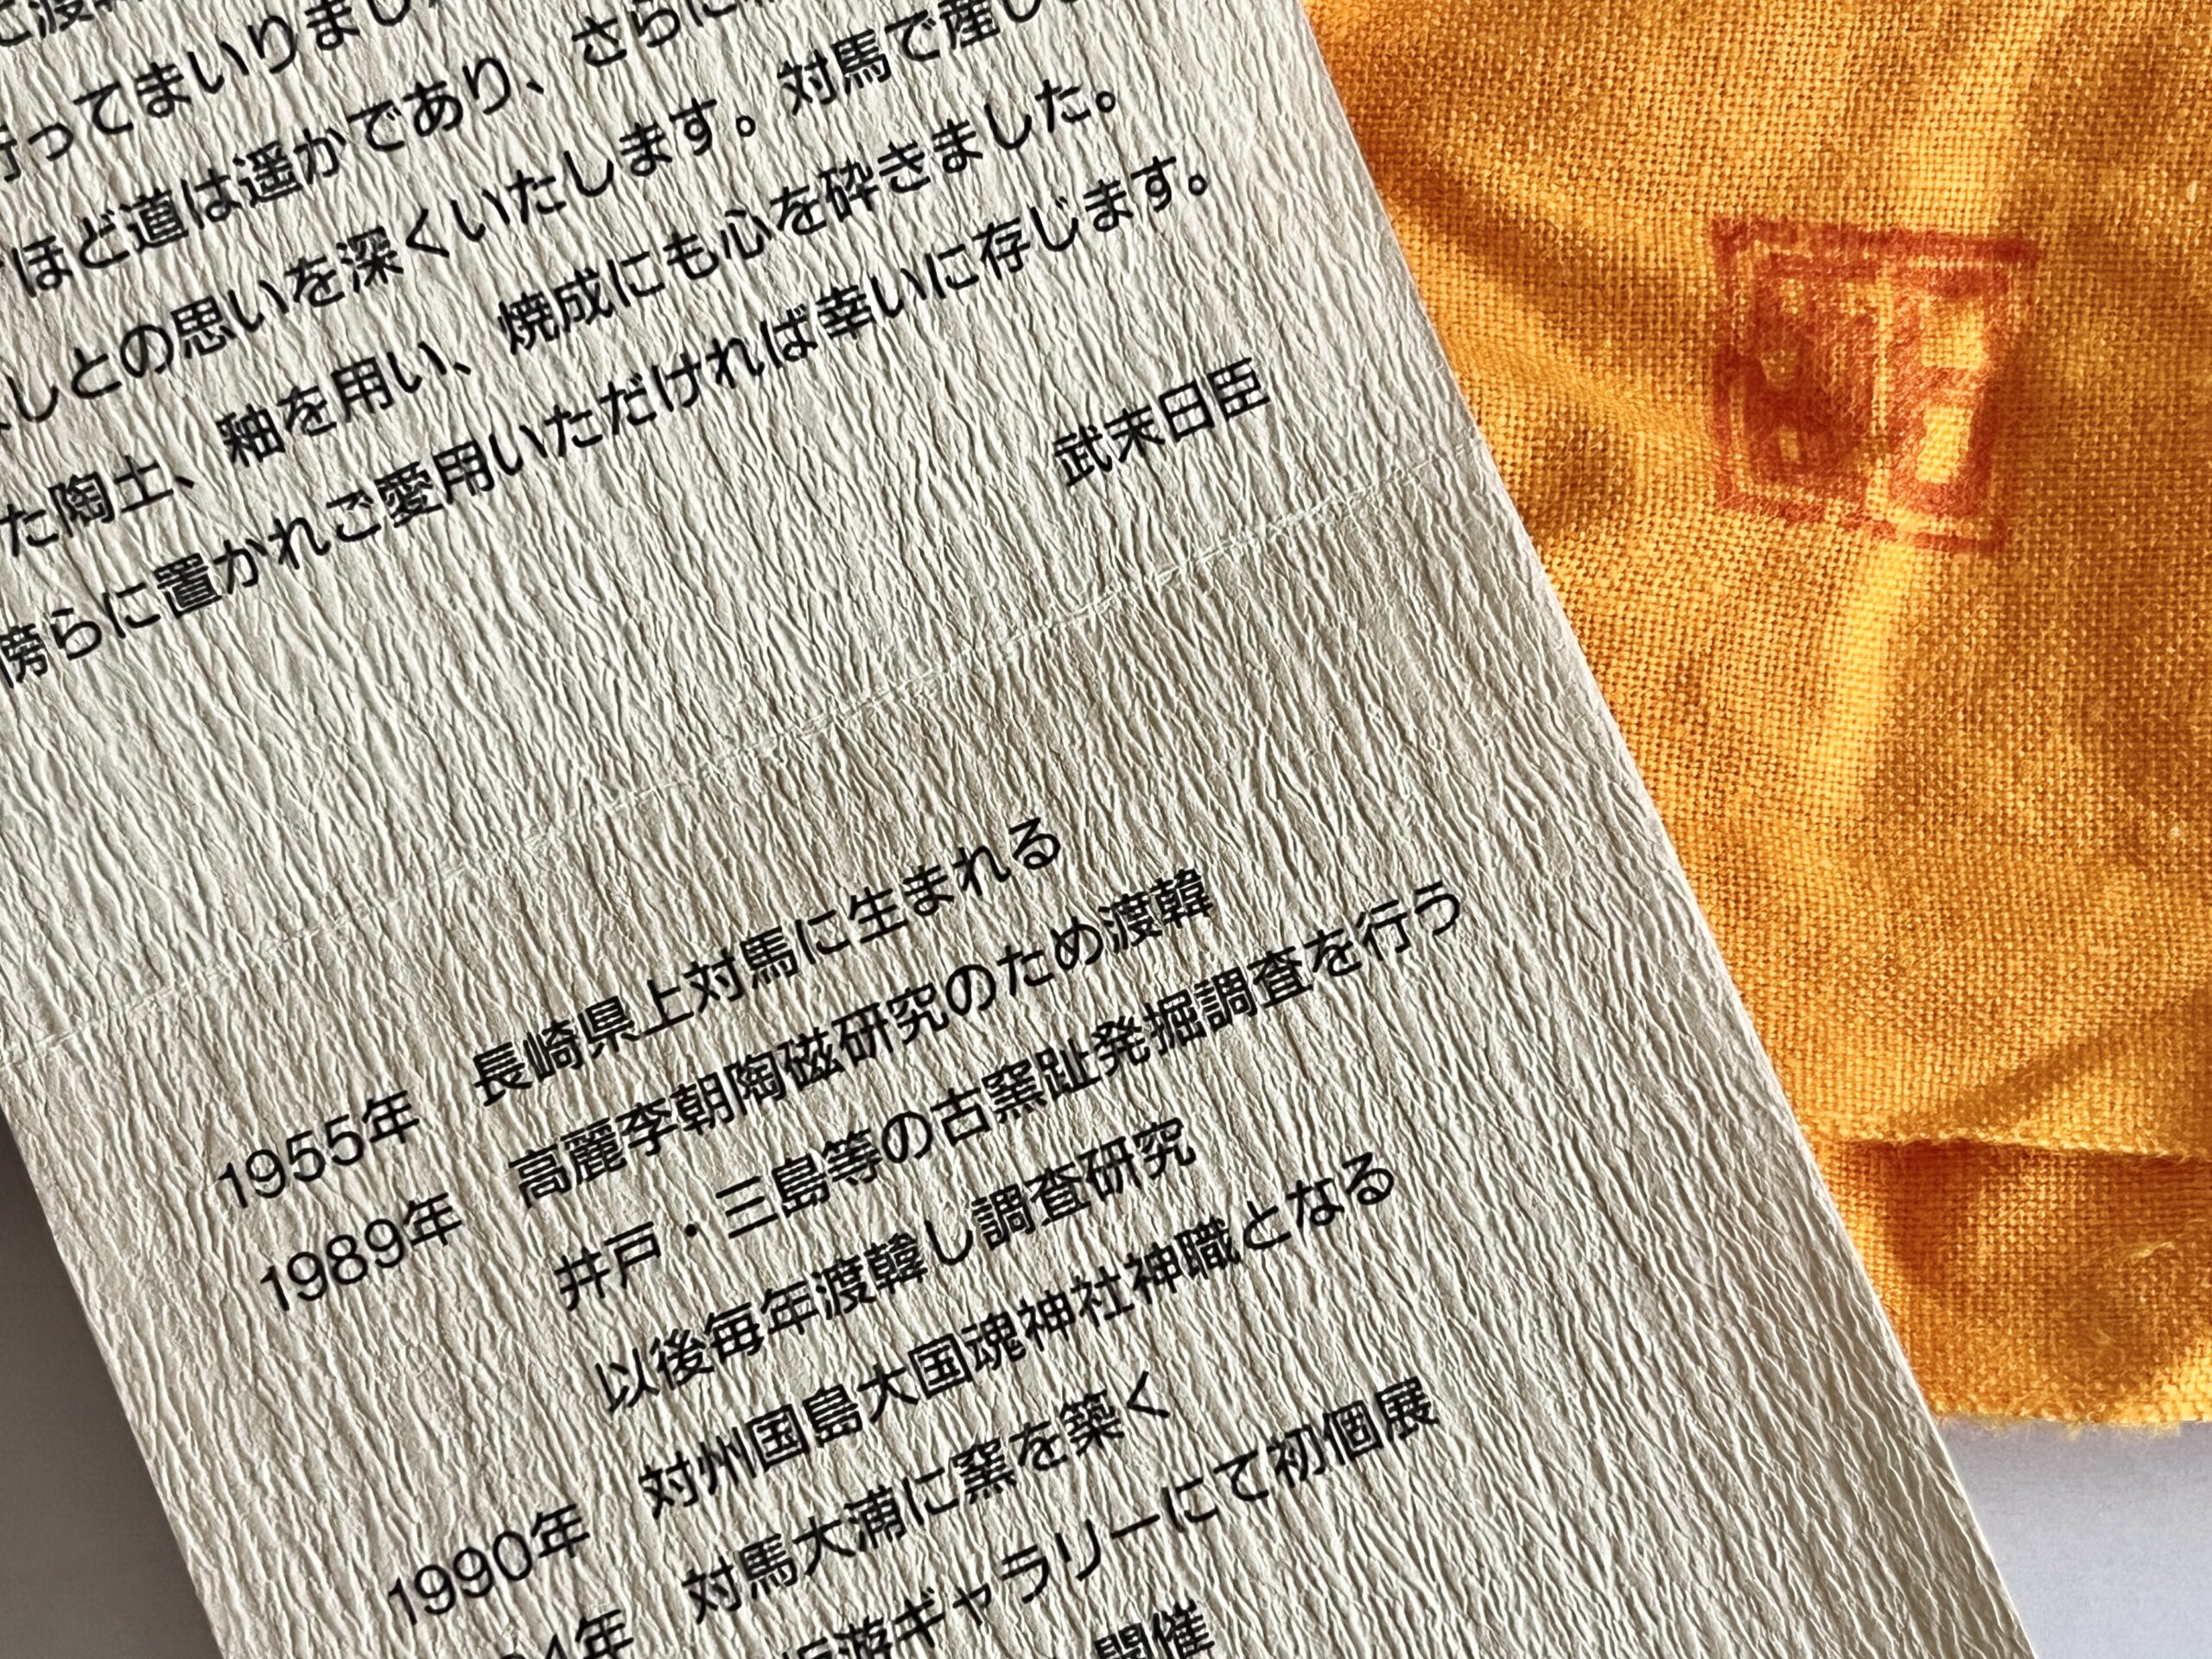 ってまいりまし
ほど道は遥かであり、さらに
しとの思いを深くいたします。対馬で産し
た陶土、釉を用い、焼成にも心を砕きました。
傍らに置かれご愛用いただければ幸いに存じます。
武末日臣
1955年 長崎県上対馬に生まれる
1989年 高麗李朝陶磁研究のため渡韓
井戸・三島等の古窯趾発掘調査を行う
以後毎年渡韓し調査研究
1990年 対州国島大国魂神社神職となる
4年 対馬大浦に窯を築く
游ギャラリーにて初個展
開催